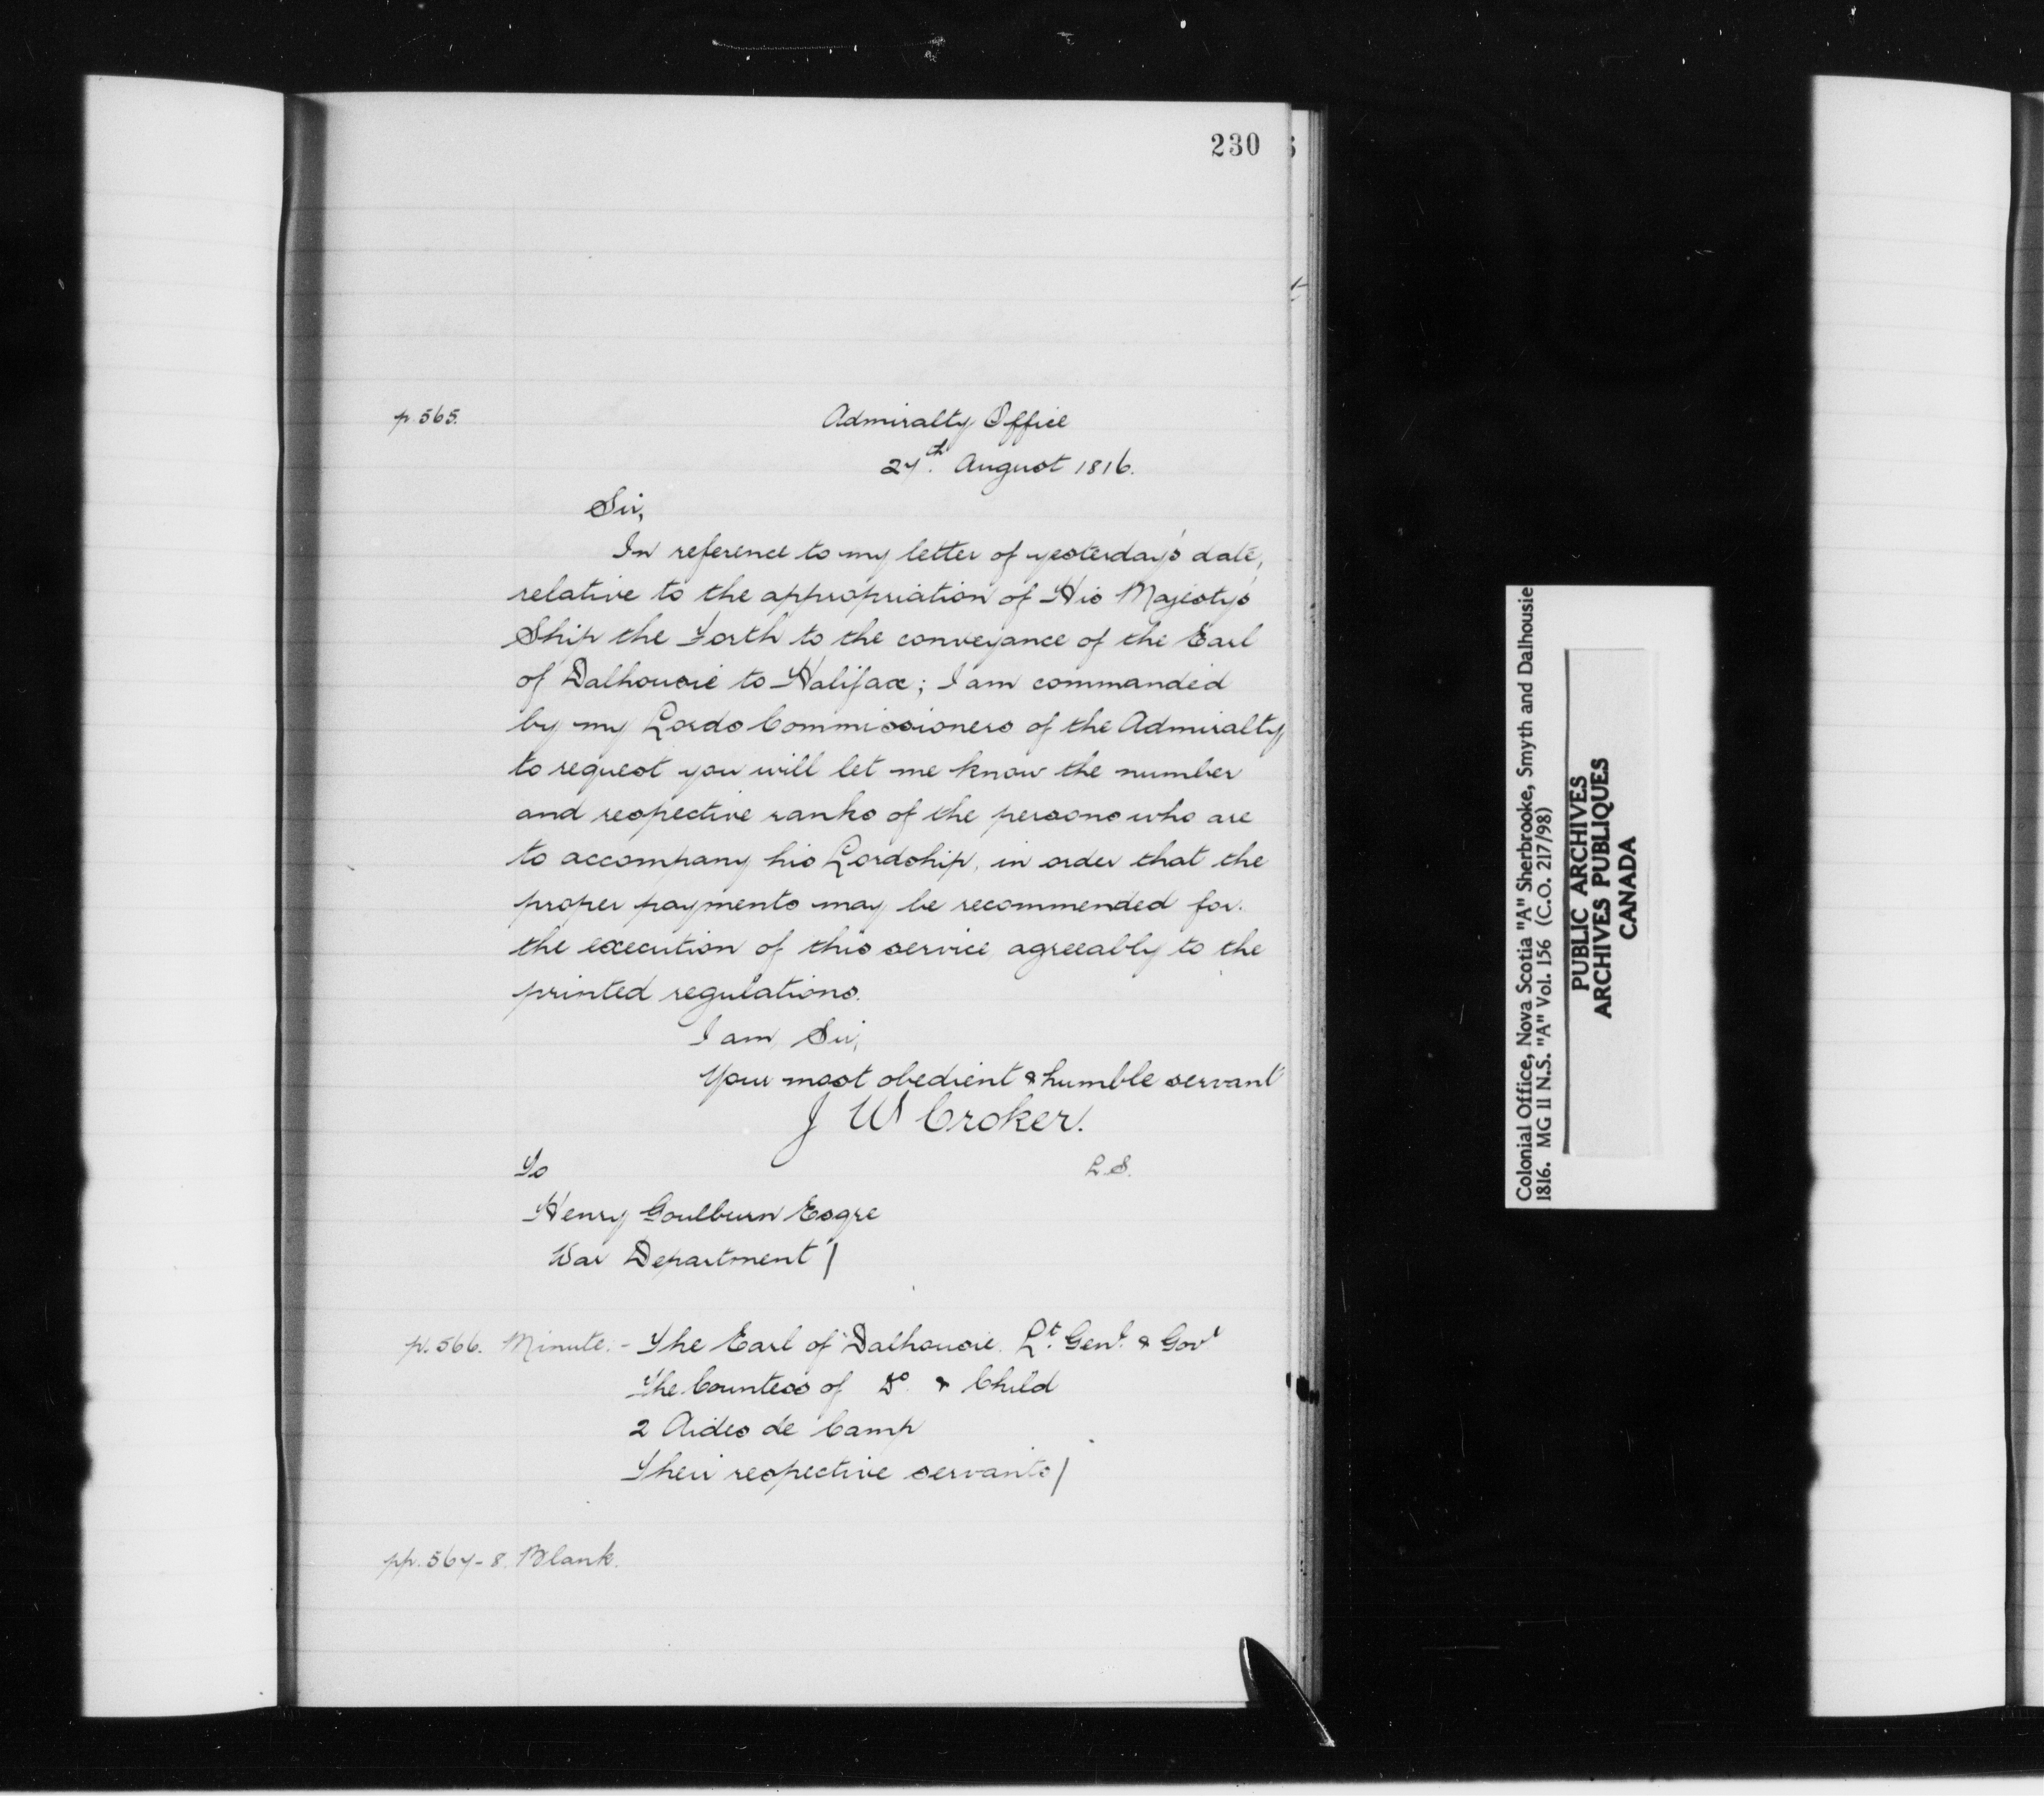 230
p. 565.
Admiralty Office
27th. August 1816.
Sir,
In reference to my letter of yesterday's date,
relative to the appropriation of His Majesty's
Ship the Forth to the conveyance of the Earl
of Dalhousie to Halifax; I am commanded
by my Lords Commissioners of the Admiralty
to request you will let me know the number
and respective ranks of the persons who are
to accompany his Lordship, in order that the
proper payments may be recommended for
the execution of this service agreeably to the
printed regulations.
I am, Sir,
Your most obedient & humble servant
J W Croker.
To
L.S.
Henry Goulburn Esqre
War Department /
p. 566. Minute. - The Earl of Dalhousie. Lt. Genl. & Govr
The Countess of Do. & Child
2 Aides de Camp
Their respective servants /
pp. 567-8. Blank.
Colonial Office, Nova Scotia "A" Sherbrooke, Smyth and Dalhousie
1816. MG 11 N.S. "A" Vol. 156 (C.O. 217/98)
PUBLIC ARCHIVES
ARCHIVES PUBLIQUES
CANADA